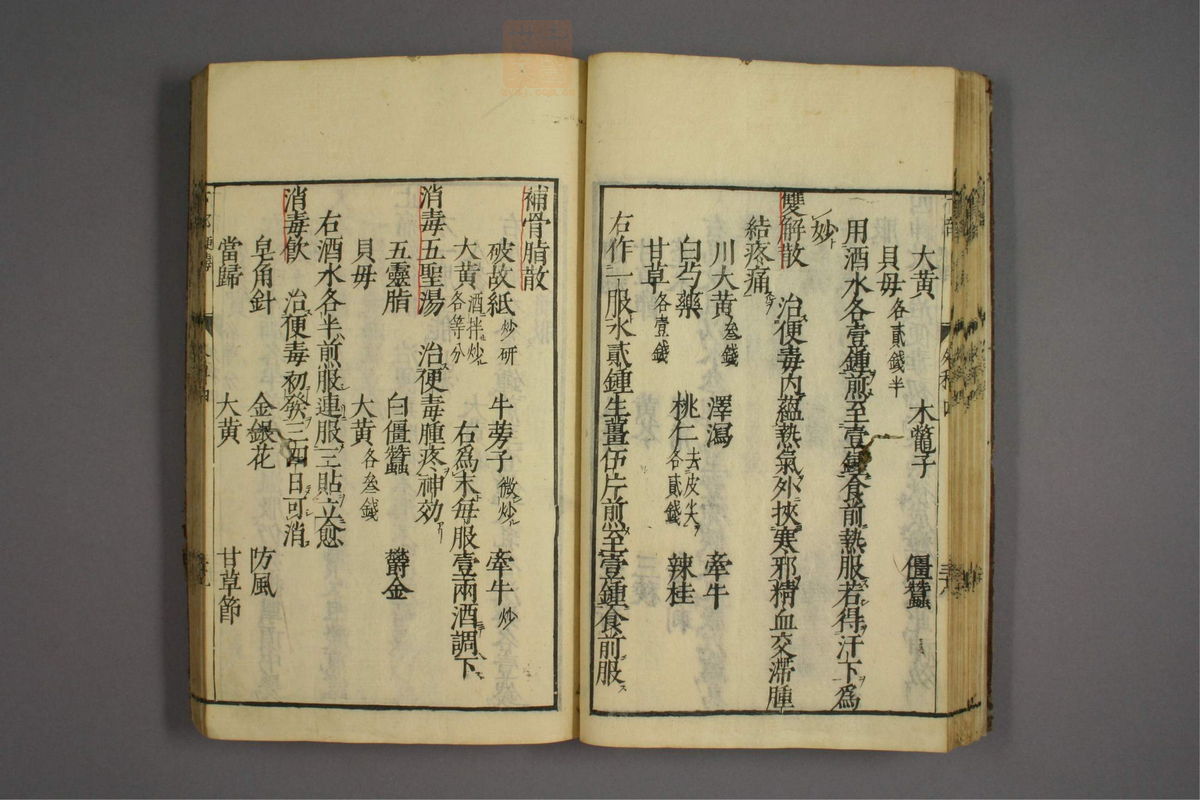 大黄 木鼈子 僵蠶
貝母各貳錢半
用酒水各壹鍾煎至壹鍾食前熱服若得汗下爲
妙
雙解散 治便毒内蘊熱氣外挾寒邪精血交滯腫
結疼痛
川大黄叁錢 澤瀉 牽牛
白芍藥 桃仁去皮尖各貳錢 辣桂
甘草各壹錢
右作一服水貳鍾生薑伍片煎至壹鍾食前服
補骨脂散
破故紙炒研 牛蒡子微炒 牽牛炒
大黄酒拌炒各等分 右爲末毎服壹兩酒調下
消毒五聖湯 治便毒腫疼神効
五靈脂 白僵蠶 欝金
貝母 大黄各叁錢
右酒水各半煎服連服三貼立愈
消毒飲 治便毒初發三四日可消
皂角針 金銀花 防風
當歸 大黄 甘草節